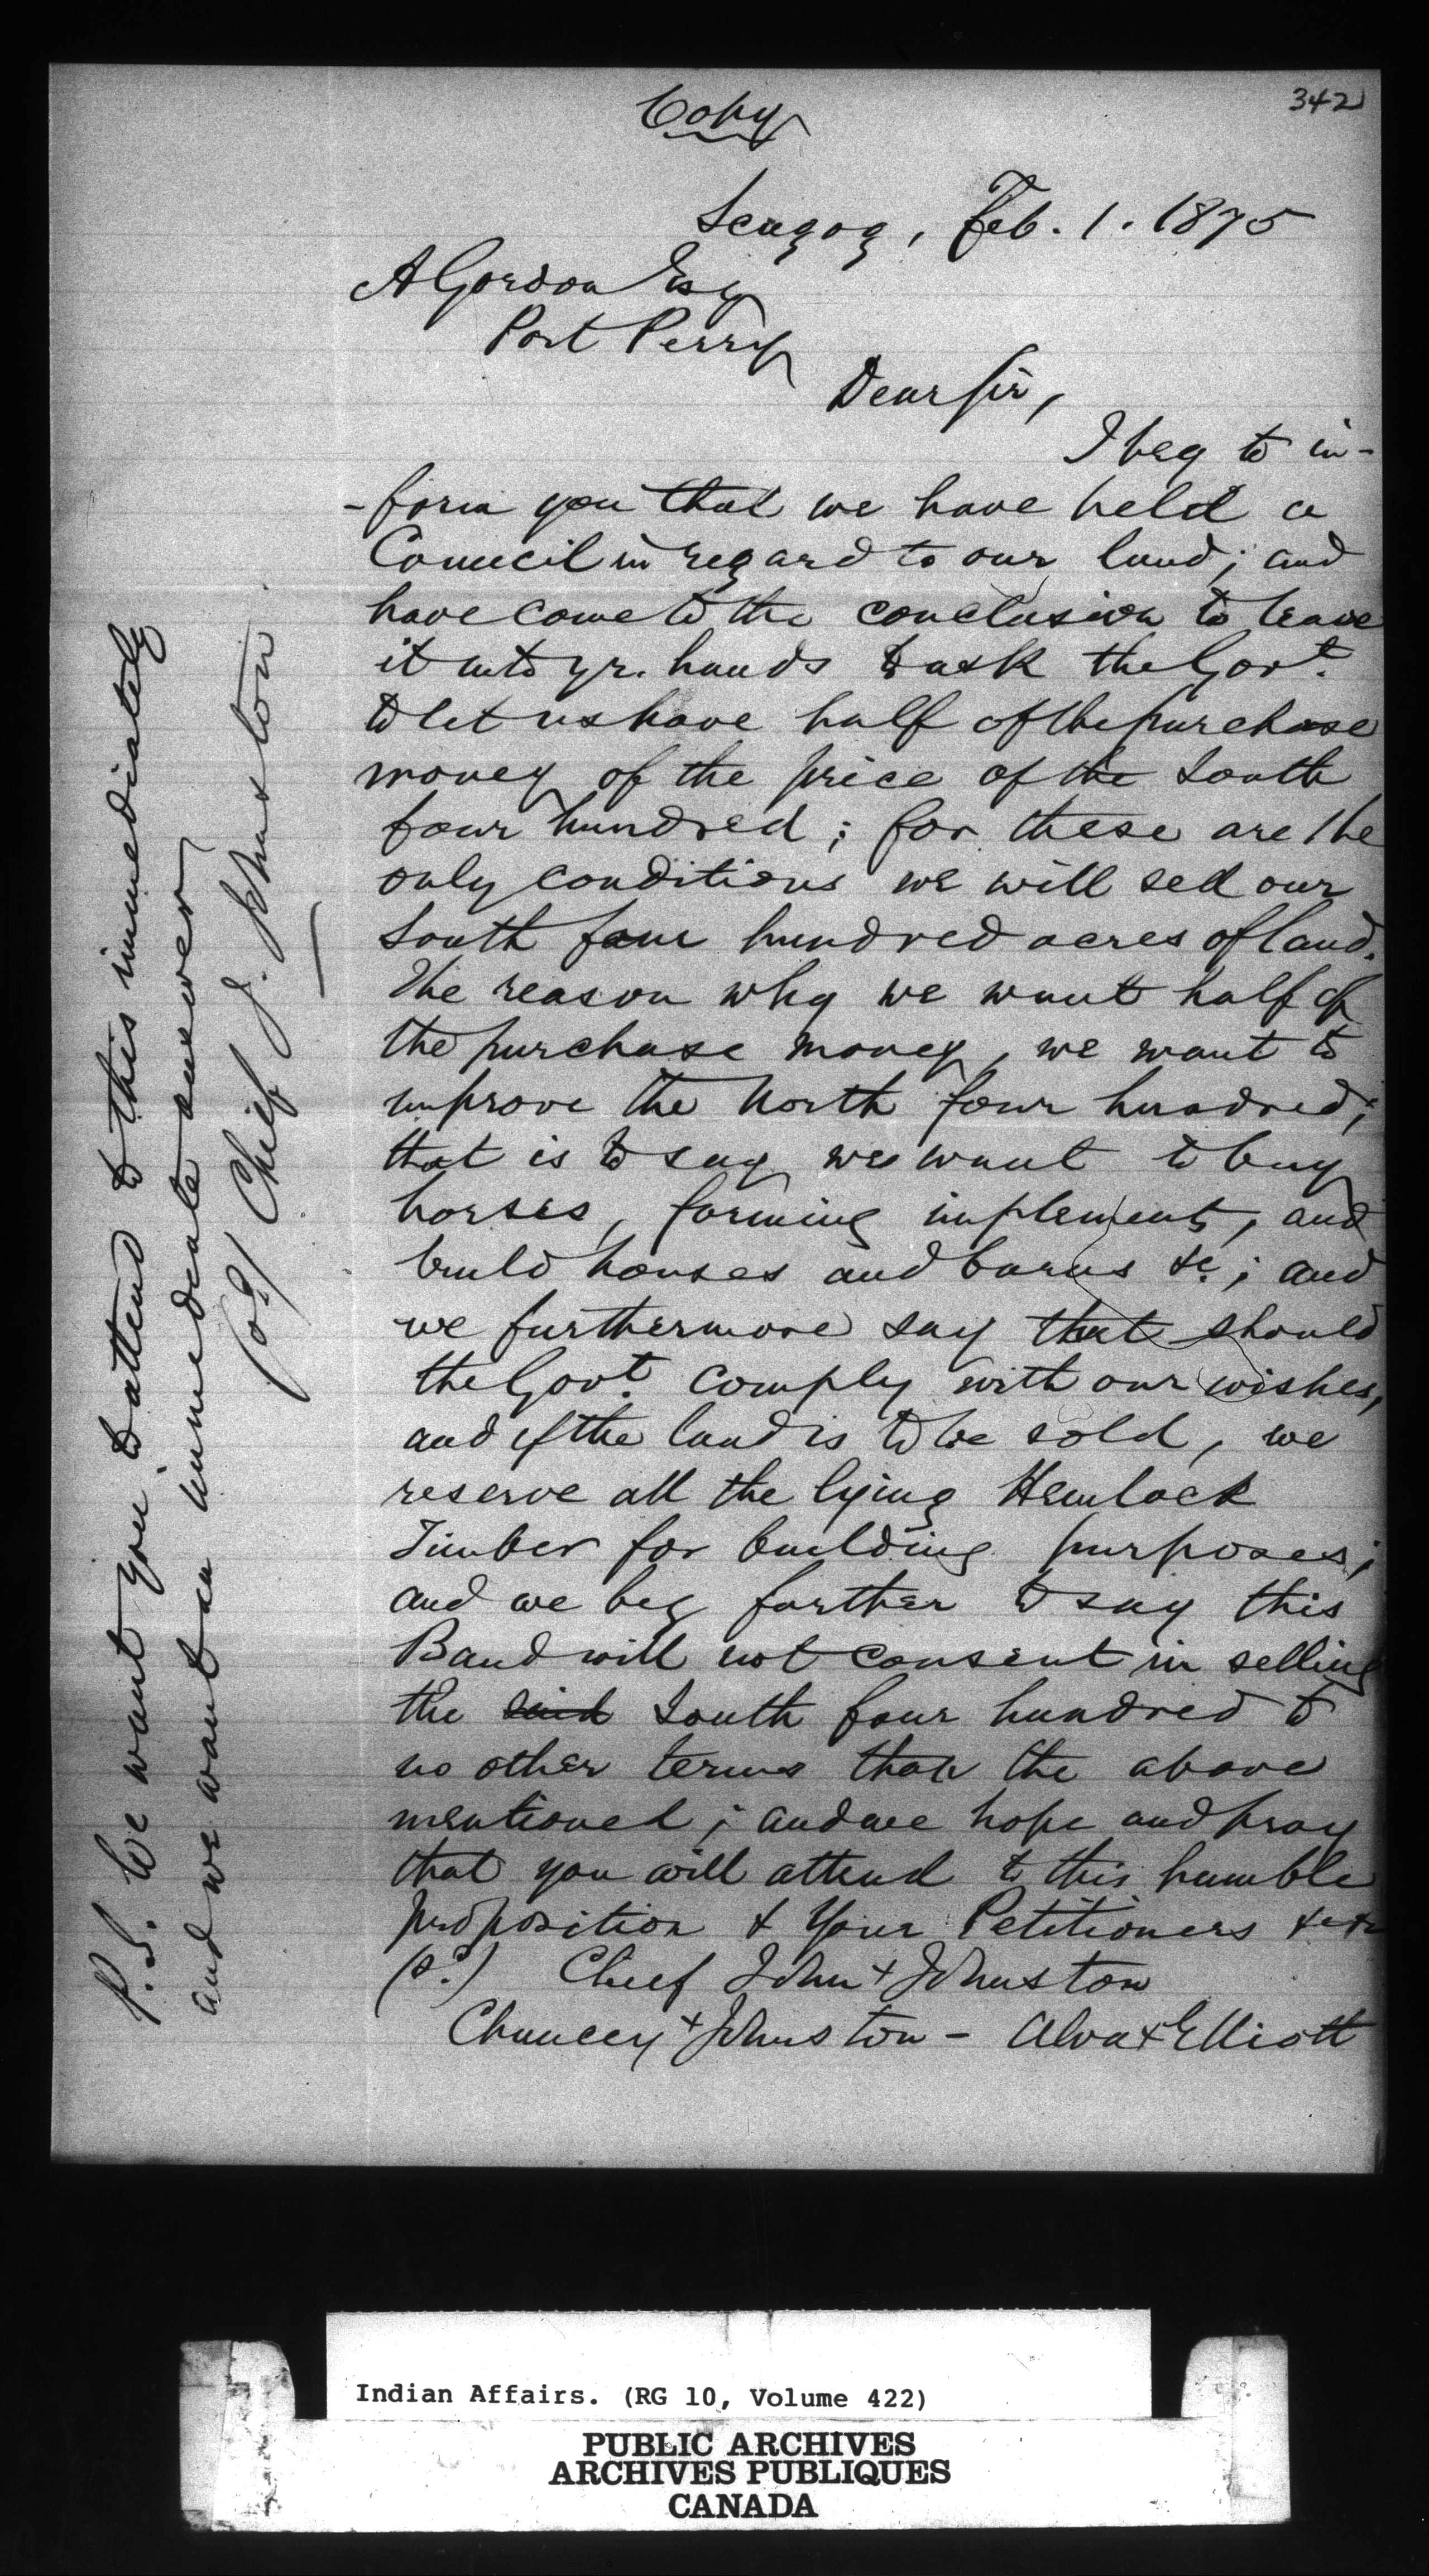 342
Copy
Scugog, Feb. 1. 1875
A Gordon Esq
Port Perry
Dear Sir,
I beg to in-
-form you that we have held a
Council in regard to our land; and
have come to the conclusion to leave
it into yr. hands to ask the Govt.
to let us have half of the purchase
money of the price of the South
four hundred; for these are the
only conditions we will sell our
South four hundred acres of land.
The reason why we want half of
the purchase money, we want to
improve the North four hundred;
that is to say we want to buy
horses, farming implements, and
build houses and barns &c.; and
we furthermore say that should
the Govt. comply with our wishes,
and if the land is to be sold, we
reserve all the lying Hemlock
Timber for building purposes;
and we beg further to say this
Band will not consent in selling
the said South four hundred to
no other terms than the above
mentioned; and we hope and pray
that you will attend to this humble
proposition & Your Petitioners &c &c
(sd.) Chief John + Johnston
Chauncey + Johnston - Alva + Elliott
P.S. We want you to attend to this immediately
and we want an immediate answer
(sd.) Chief J. Johnston
Indian Affairs. (RG 10, Volume 422)
PUBLIC ARCHIVES
ARCHIVES PUBLIQUES
CANADA